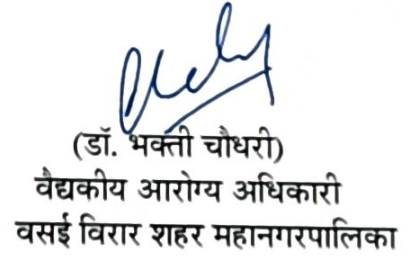 (डॉ. भक्ती चौधरी)
वैद्यकीय आरोग्य अधिकारी
वसई विरार शहर महानगरपालिका